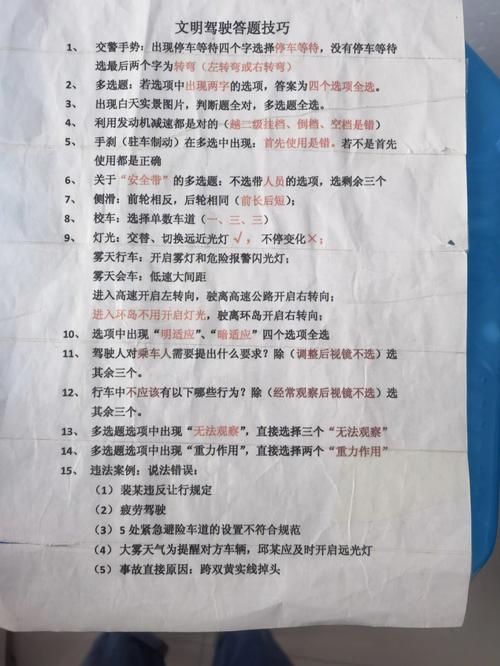 文明驾驶答题技巧
1、 交警手势：出现停车等待四个字选择停车等待，没有停车等待
选最后两个字为转弯（左转弯或右转弯）
2、 多选题：若选项中出现两字的选项，答案为四个选项全选。
3、 出现白天实景图片，判断题全对，多选题全选。
4、 利用发动机减速都是对的（越二级挂档、倒档、空档是错）
5、 手刹（驻车制动）在多选中出现：首先使用是错。若不是首先
使用都是正确
6、 关于“安全带”的多选题：不选带人员的选项，选剩余三个
7、 侧滑：前轮相反，后轮相同（前长后短）；
8、 校车：选择单数车道（一、三、三）
9、 灯光：交替、切换远近光灯√，不停变化×；
雾天行车：开启雾灯和危险报警闪光灯；
雾天会车：低速大间距
进入高速开启左转向，驶离高速公路开启右转向；
进入环岛不用开启灯光，驶离环岛开启右转向；
10、 选项中出现“明适应”、“暗适应”四个选项全选
11、 驾驶人对乘车人需要提出什么要求？除（调整后视镜不选）选
其余三个。
12、 行车中不应该有以下哪些行为？除（经常观察后视镜不选）选
其余三个。
13、 多选题选项中出现“无法观察”，直接选择三个“无法观察”
14、 多选题选项中出现“重力作用”，直接选择两个“重力作用”
15、 违法案例：说法错误：
（1）裴某违反让行规定
（2）疲劳驾驶
（3）5 处紧急避险车道的设置不符合规范
（4）大雾天气为提醒对方车辆，邱某应及时开启远光灯
（5）事故直接原因：跨双黄实线掉头